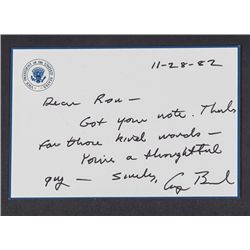 11-28-82
Dear Ron —
Got your note. Thanks
for those kind words —
You're a thoughtful
guy — Sincerely, G Bush